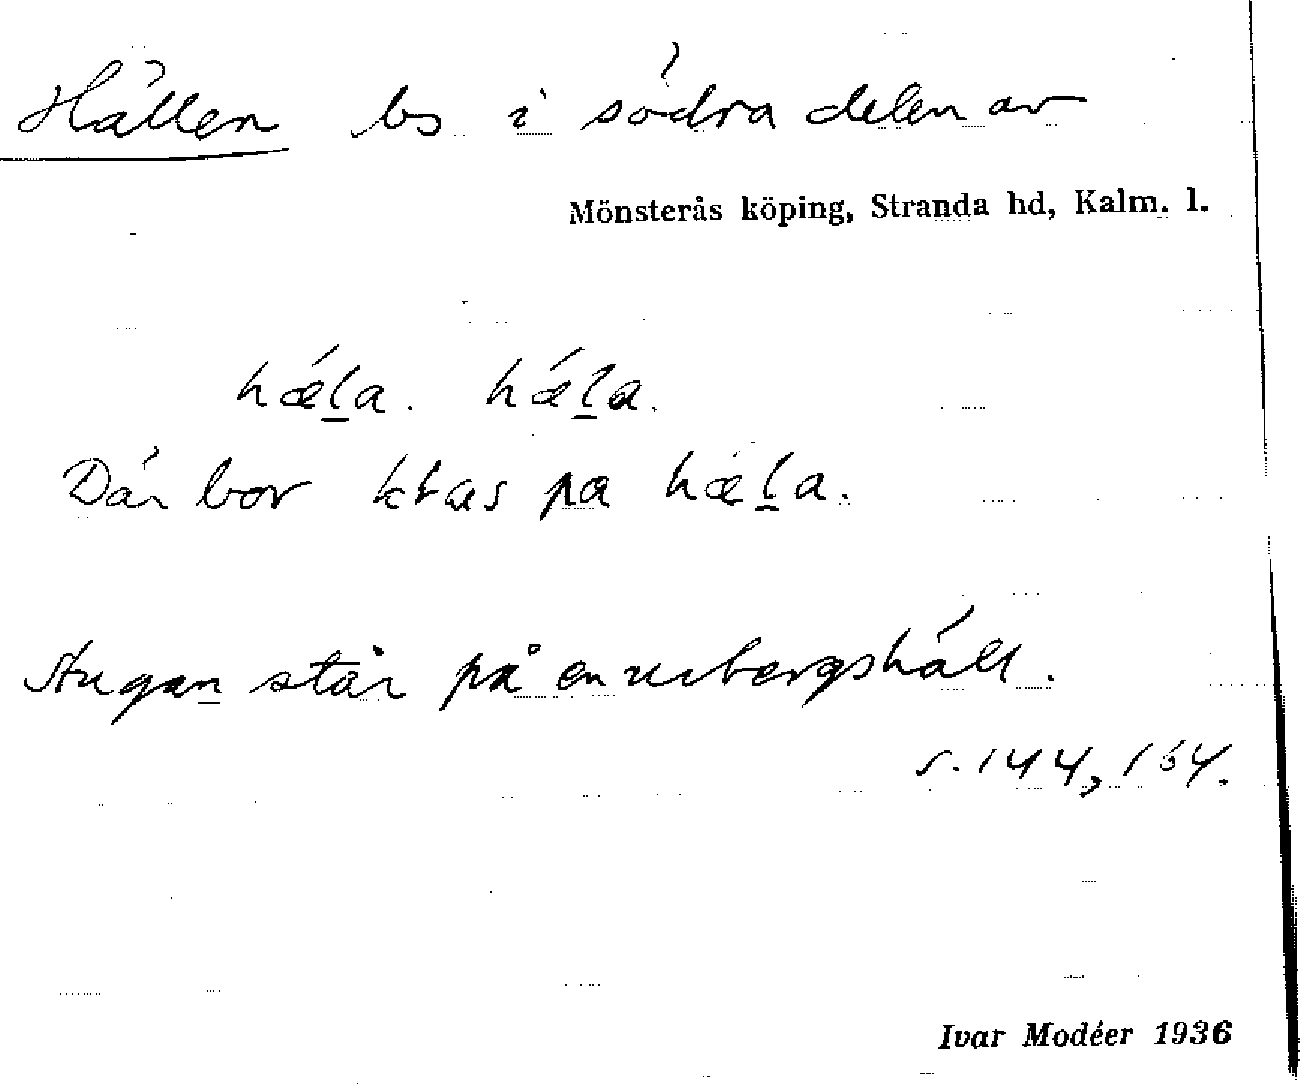 Hällen bs i södra delen av
Mönsterås köping, Stranda hd, Kalm. l.
hǽl̲a. hǽl̲a.
Där bor klas pa hæl̲a.
Stugan står på en urbergshäll.
s. 144, 154.
Ivar Modéer 1936